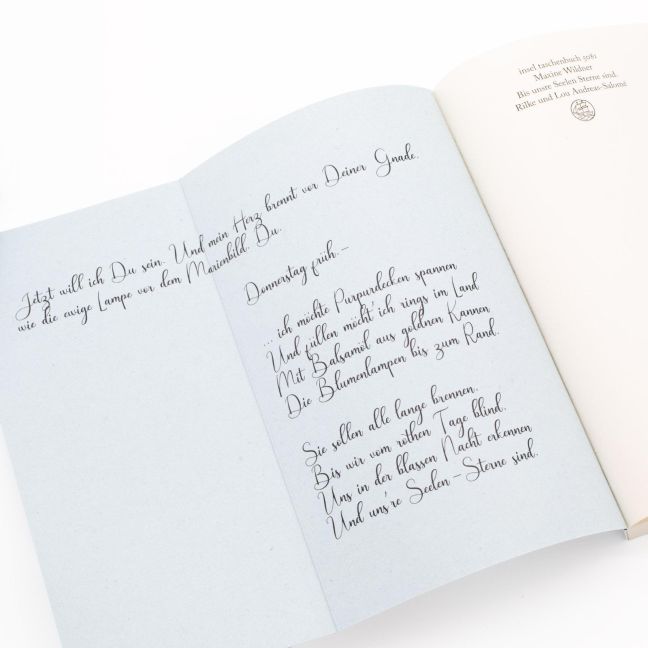 Jetzt will ich Du sein. Und mein Herz brennt vor Deiner Gnade,
wie die ewige Lampe vor dem Marienbild. Du.
Donnerstag früh. –
... ich möchte Purpurdecken spannen
Und füllen möcht' ich rings im Land
Mit Balsamöl aus goldnen Kannen
Die Blumenlampen bis zum Rand.
Sie sollen alle lange brennen.
Bis wir vom röthen Tage blind.
Uns in der blassen Nacht erkennen
Und uns're Seelen – Sterne sind.
insel taschenbuch 5081
Maxine Wildner
Bis unsre Seelen Sterne sind.
Rilke und Lou Andreas-Salomé